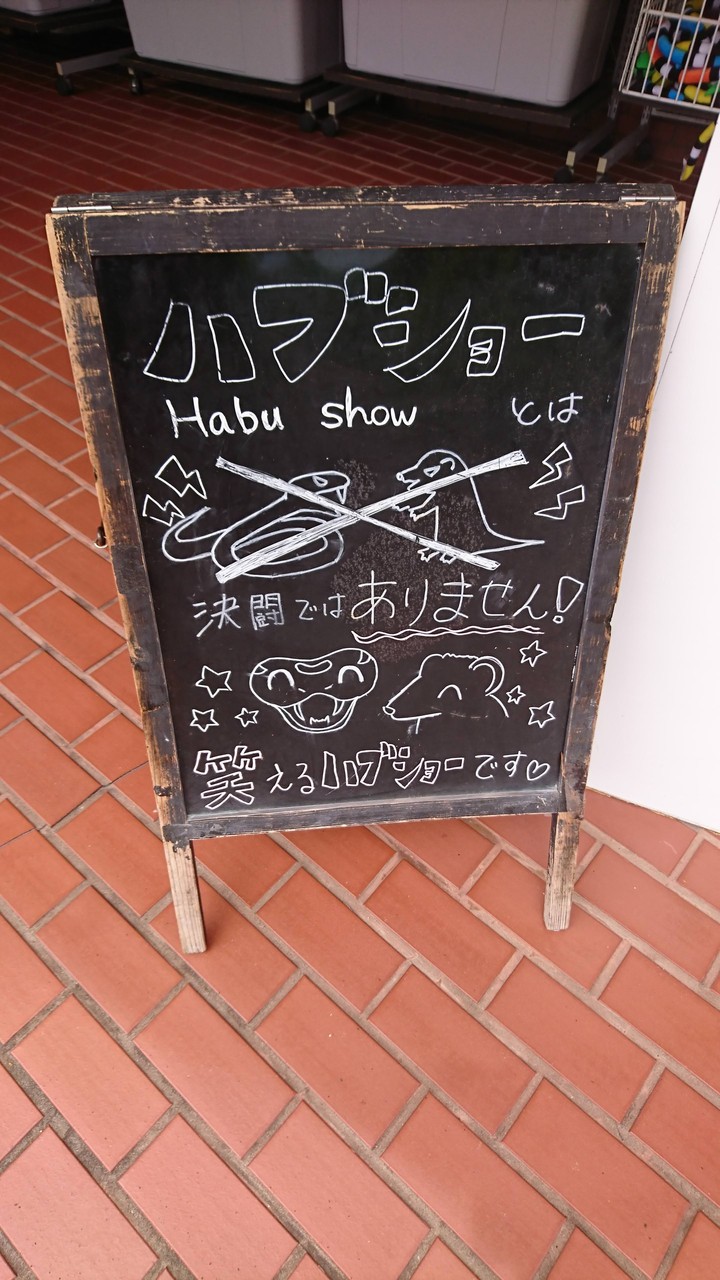 ハブショー
Habu show とは
決闘ではありません!
笑えるハブショーです♡